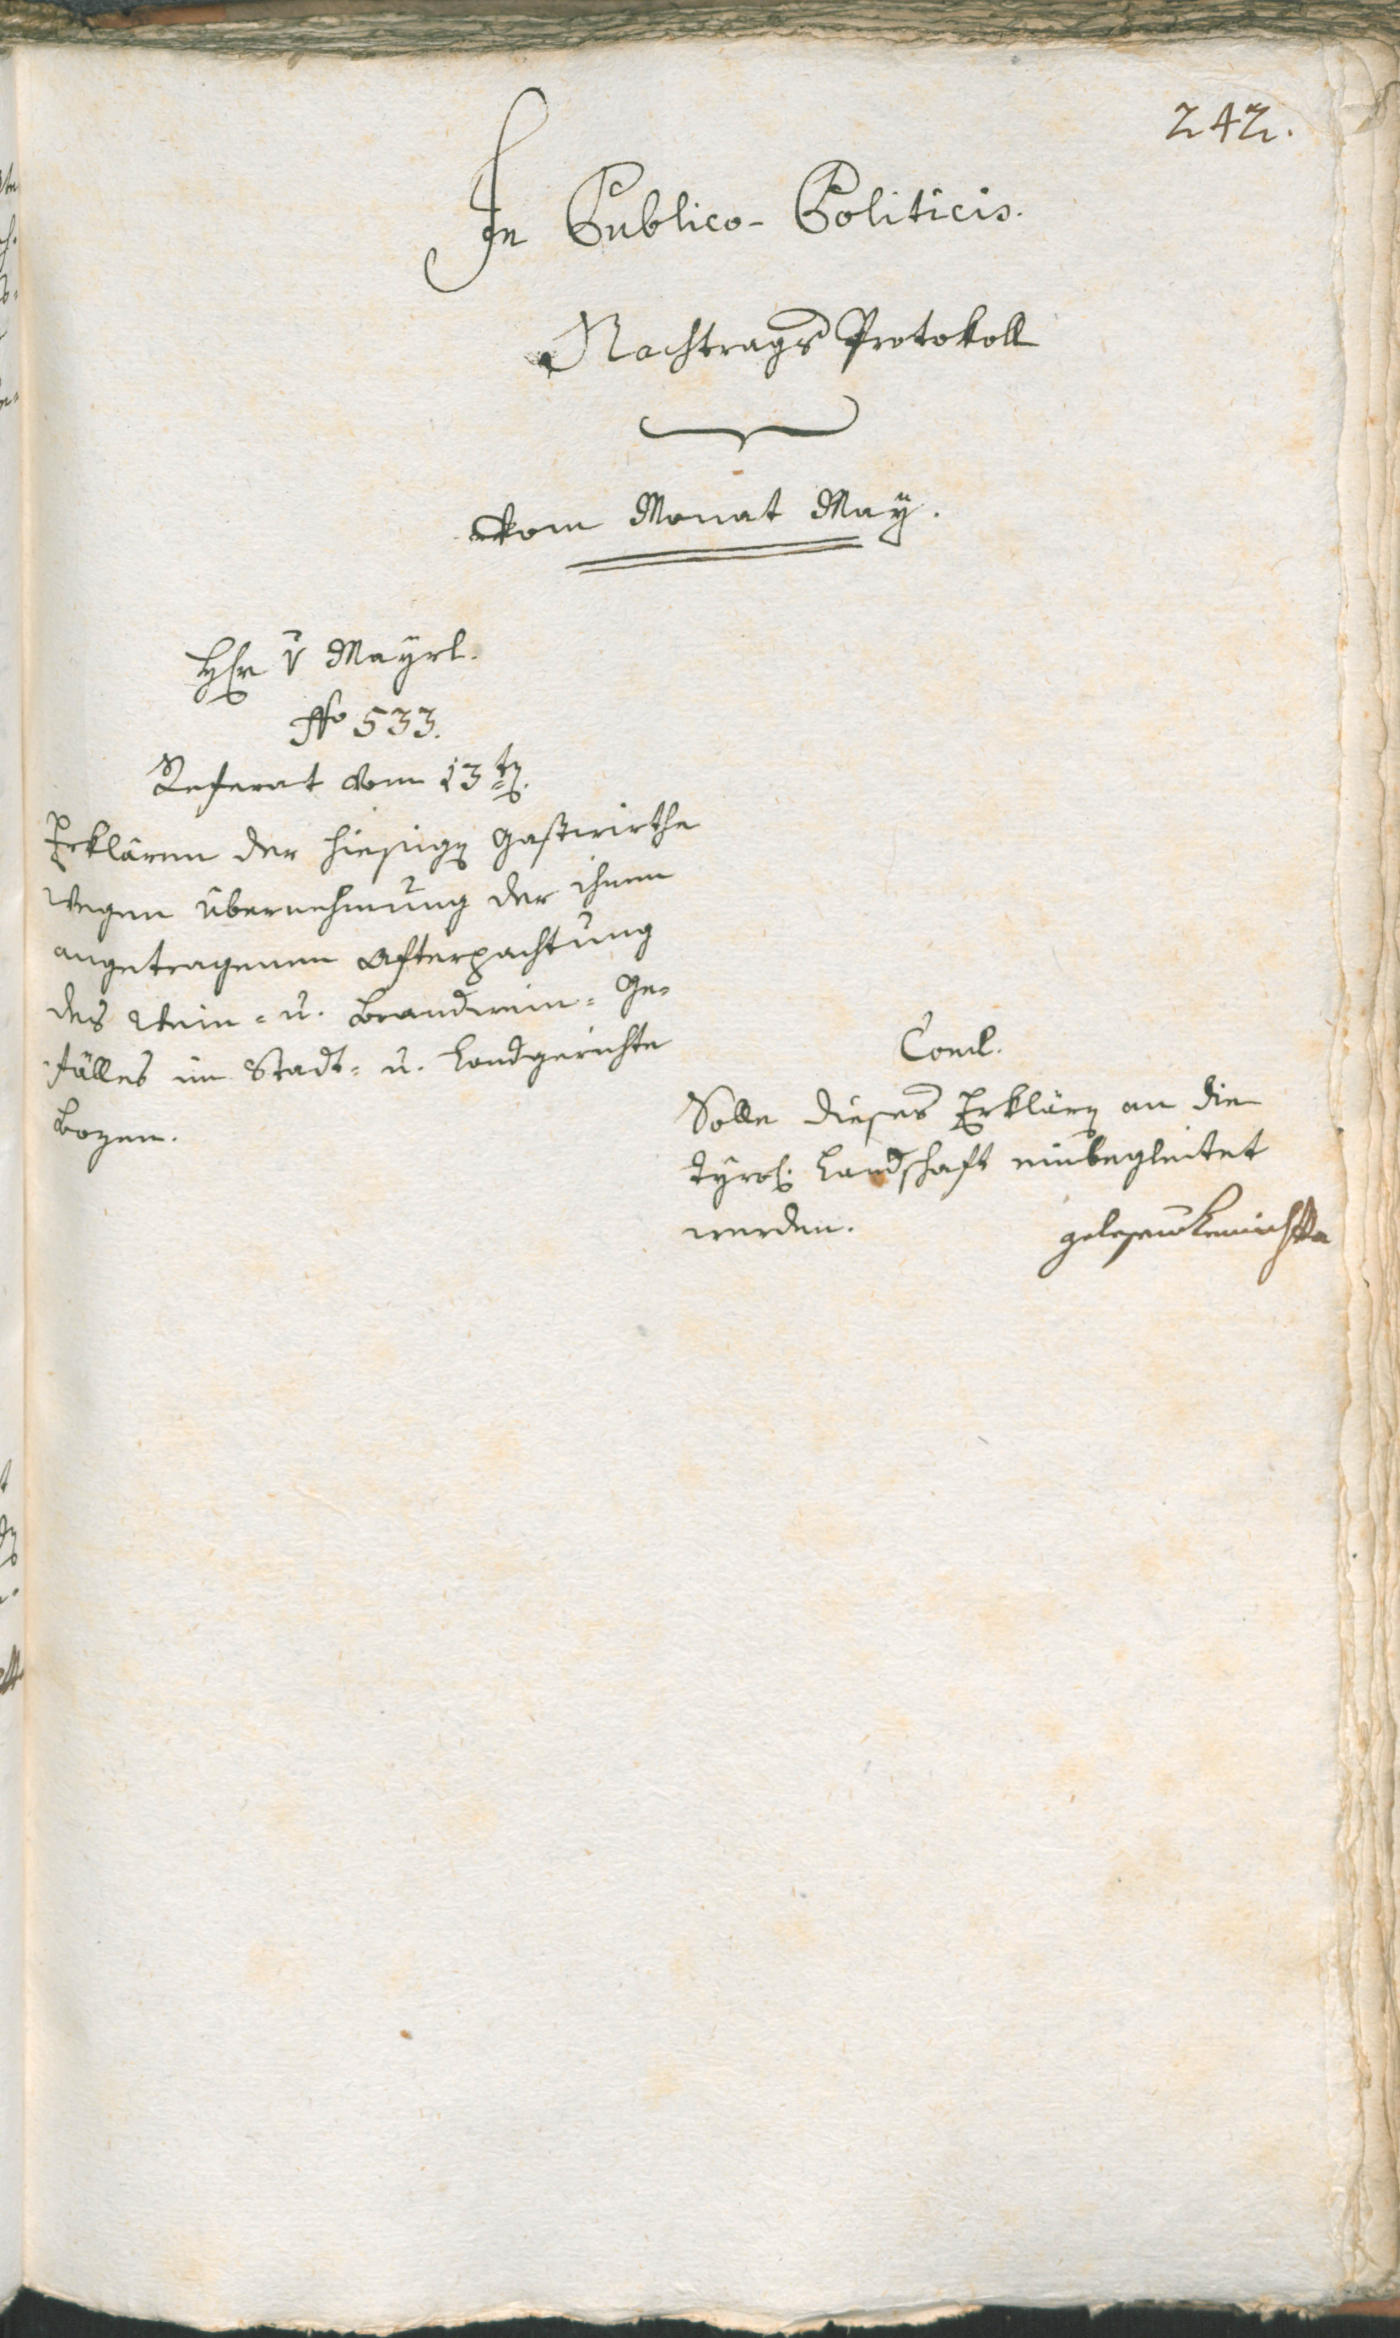 242.
In Publico-Politicis.
Nachtrags Protokoll
vom Monat May.
Hr v Mayrl.
No 533.
Referat vom 13ten.
Erklären der hiesigen Gastwirthe
wegen übernehmung der ihnen
angetragenen Afterpachtung
des Wein- u. Brandwein-Ge-
fälles im Stadt- u. Landgerichte
Bozen.
Concl.
Solle dieses Erklären an die
tyrol. Landschaft einbegleitet
werden.
gelesen